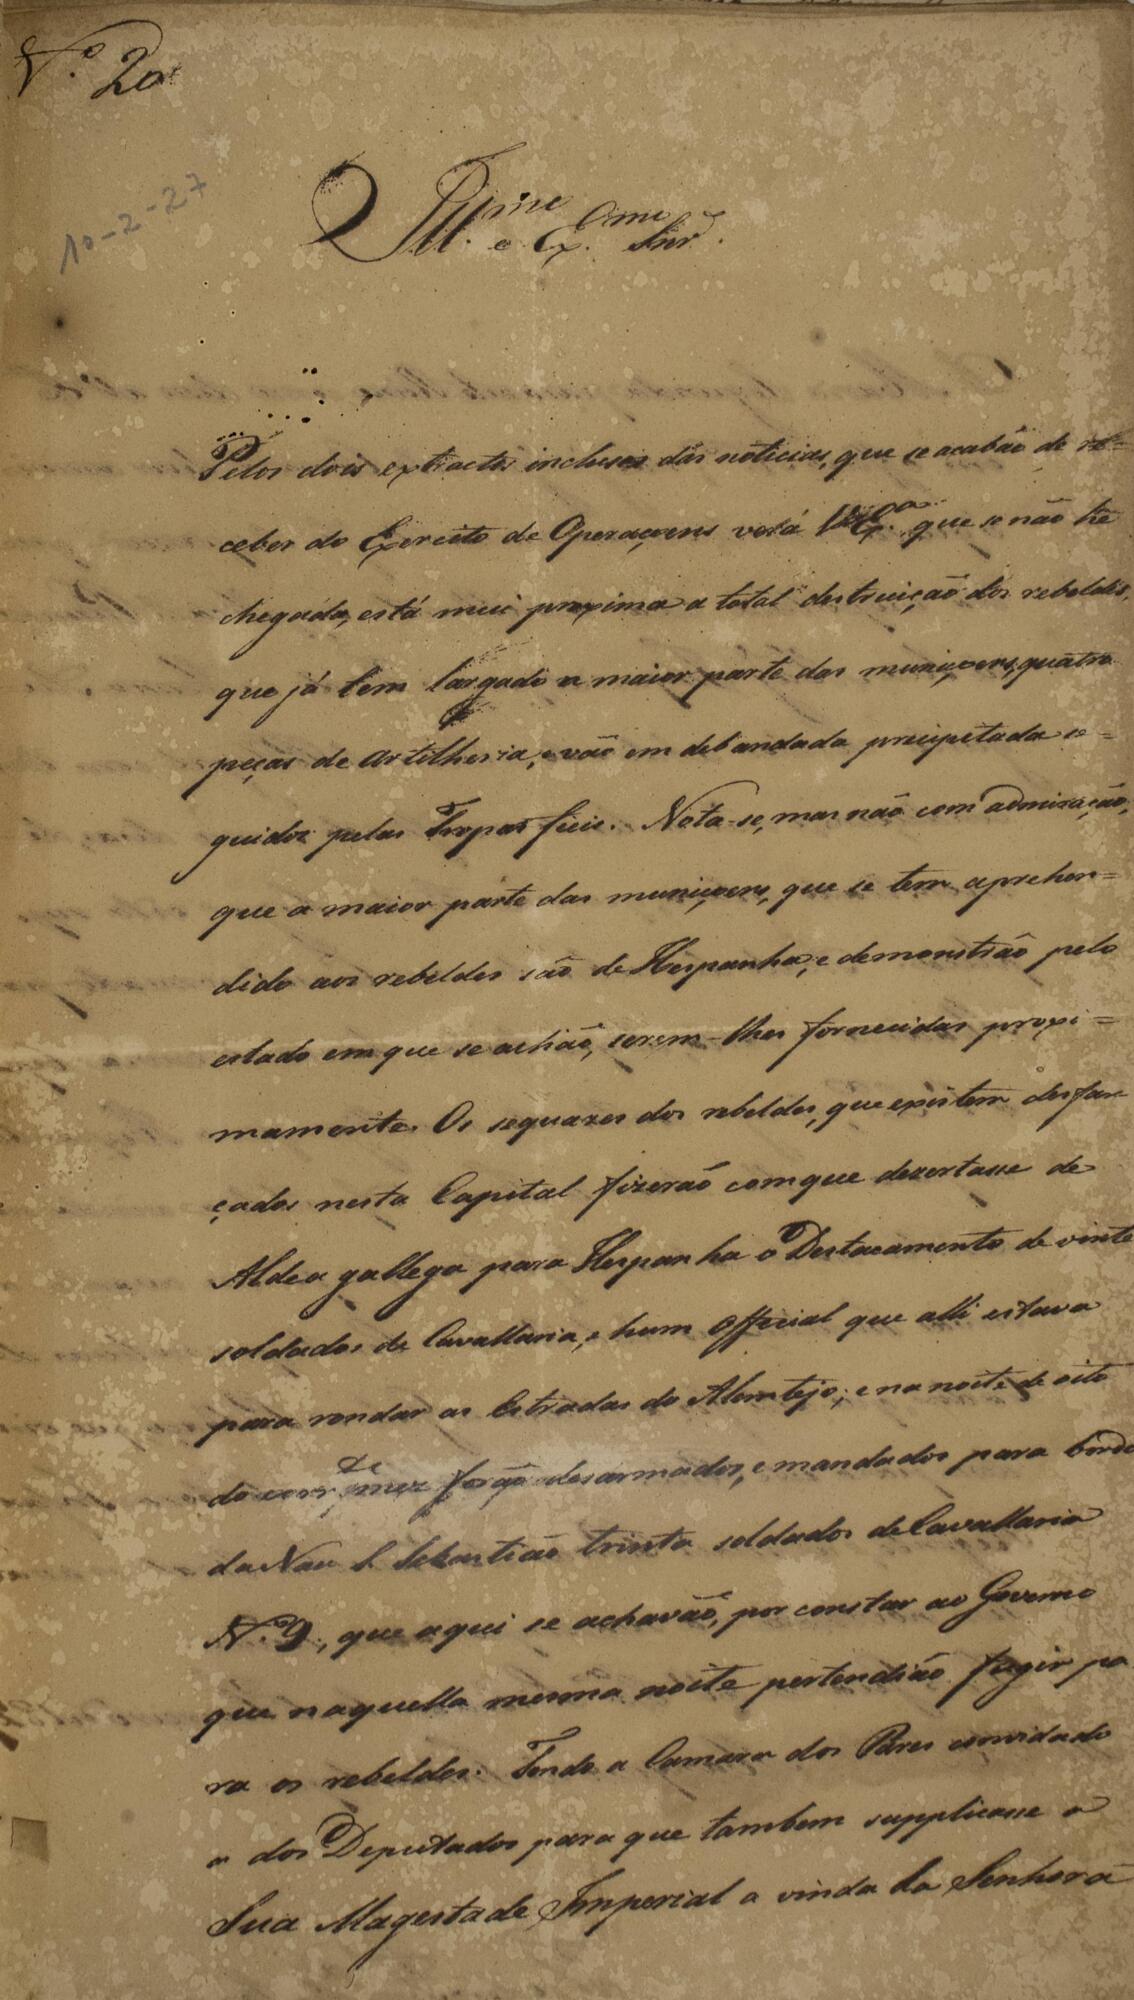 N.º 20
10-2-27
Ill.mo e Ex.mo Snr.
Pelos dois extractos inclusos das noticias, que se acabão de re=
ceber do Exercito de Operaçoens verá V. Ex.ª que se não he
chegada, está mui proxima a total destruição dos rebeldes,
que já tem largado a maior parte das muniçoens, quatro
peças de artilheria, e vão em debandada precipitada se=
guidos pelas Tropas fieis. Nota-se, mas não com admiração,
que a maior parte das muniçoens, que se tem aprehen=
dido aos rebeldes são de Hespanha, e demonstrão pelo
estado em que se achão, serem-lhes fornecidas proxi=
mamente. Os sequazes dos rebeldes, que existem desfar=
çados nesta Capital fizerão com que dezertasse de
Aldea gallega para Hespanha o Destacamento de vinte
soldados de Cavallaria, e hum Official que alli estava
para rondar as Estradas do Alemtejo; e na noite de oito
do corr.te mez forão desarmados, e mandados para bordo
da Nau S. Sebastião trinta soldados de Cavallaria
N.º 9, que aqui se achavão, por constar ao Governo
que naquella mesma noite pertendião fugir pa
ra os rebeldes. Tendo a Camara dos Pares convidado
a dos Deputados para que tambem supplicasse a
Sua Magestade Imperial a vinda da Senhora